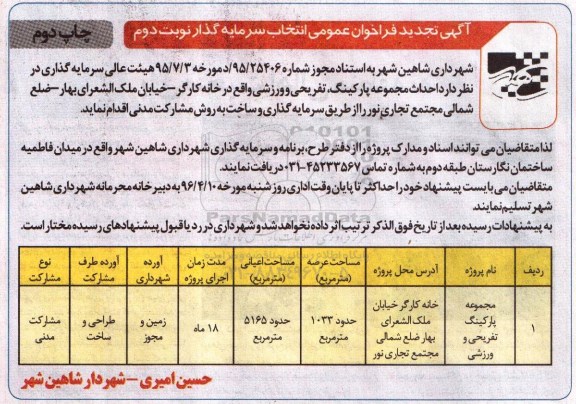 آگهی تجدید فراخوان عمومی انتخاب سرمایه گذار نوبت دوم
چاپ دوم
شهرداری شاهین شهر به استناد مجوز شماره ۹۵/۲۵۴۰۶/د مورخه ۹۵/۷/۳ هیئت عالی سرمایه گذاری در
نظر دارد احداث مجموعه پارکینگ، تفریحی و ورزشی واقع در خانه کارگر – خیابان ملک الشعرای بهار – ضلع
شمالی مجتمع تجاری نور را از طریق سرمایه گذاری و ساخت به روش مشارکت مدنی اقدام نماید.
لذا متقاضیان می توانند اسناد و مدارک پروژه را از دفتر طرح، برنامه و سرمایه گذاری شهرداری شاهین شهر واقع در میدان فاطمیه
ساختمان نگارستان طبقه دوم به شماره تماس ۴۵۲۳۳۵۶۷-۰۳۱ دریافت نمایند.
متقاضیان می بایست پیشنهاد خود را حداکثر تا پایان وقت اداری روز شنبه مورخه ۹۶/۴/۱۰ به دبیر خانه محرمانه شهرداری شاهین
شهر تسلیم نمایند.
به پیشنهادات رسیده بعد از تاریخ فوق الذکر ترتیب اثر داده نخواهد شد و شهرداری در رد یا قبول پیشنهادهای رسیده مختار است.
ParsNamadData
ردیف نام پروژه آدرس محل پروژه مساحت عرصه (مترمربع) مساحت اعیانی (مترمربع) مدت زمان اجرای پروژه آورده شهرداری آورده طرف مشارکت نوع مشارکت
۱ مجموعه پارکینگ تفریحی و ورزشی خانه کارگر خیابان ملک الشعرای بهار ضلع شمالی مجتمع تجاری نور حدود ۱۰۳۳ مترمربع حدود ۵۱۶۵ مترمربع ۱۸ ماه زمین و مجوز طراحی و ساخت مشارکت مدنی
حسین امیری – شهردار شاهین شهر